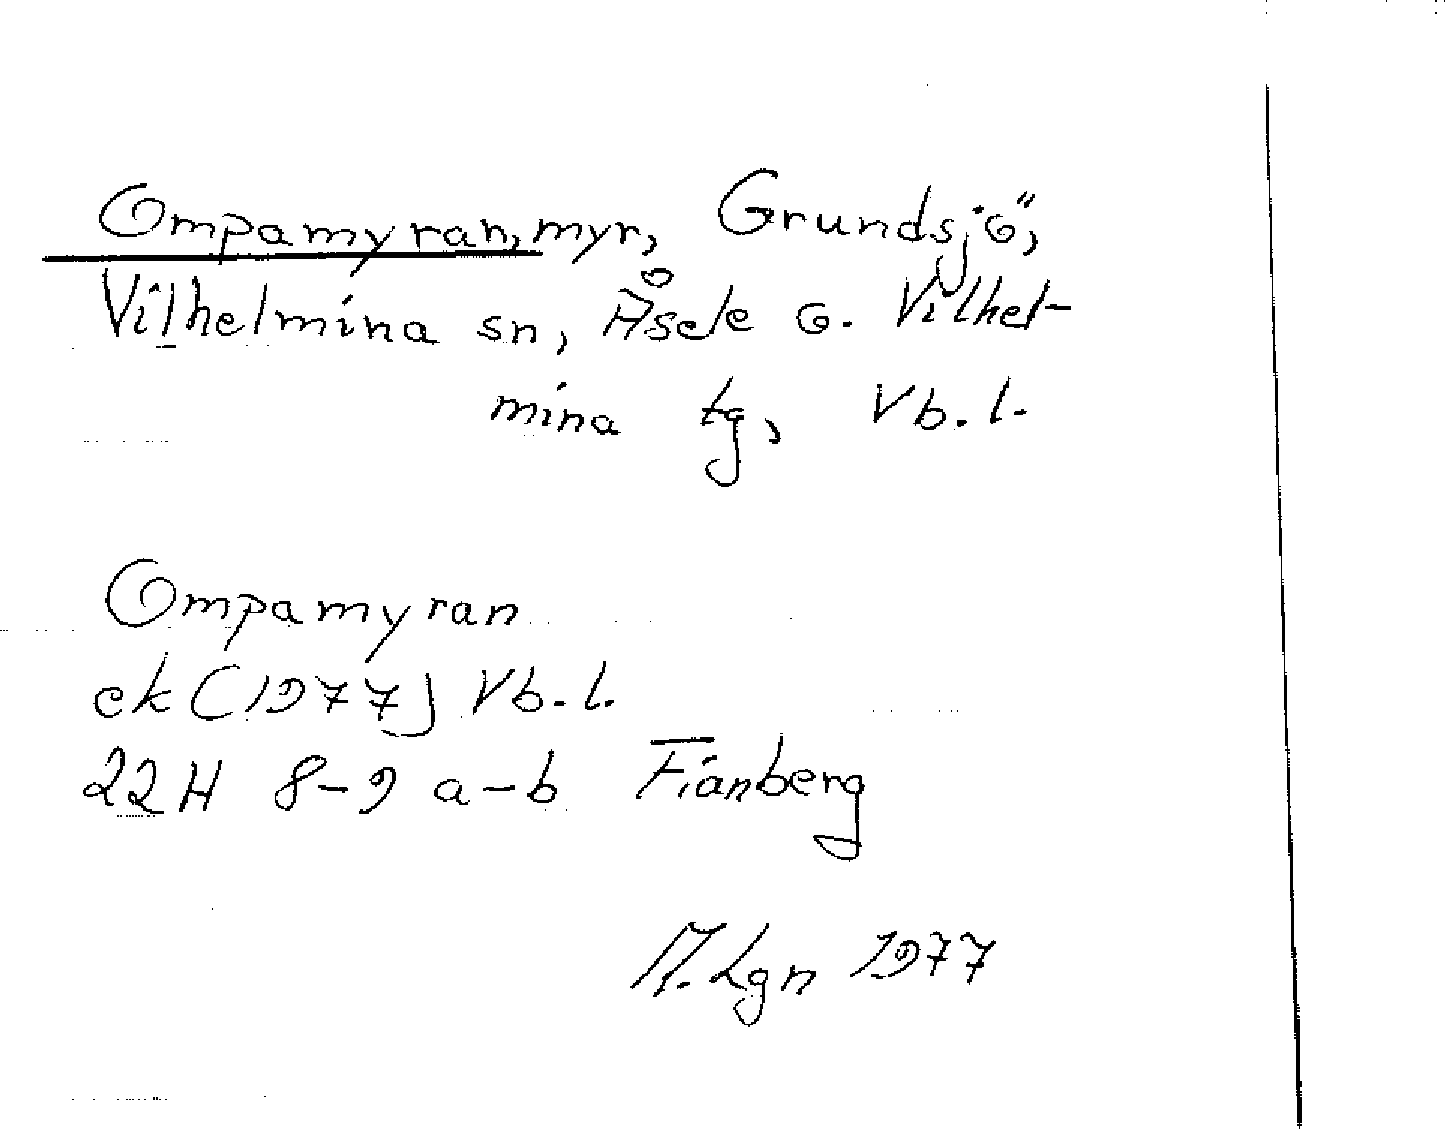 Ompamyran, myr, Grundsjö,
Vilhelmina sn, Åsele o. Vilhel-
mina tg, Vb. l.
Ompamyran
ek (1977) Vb. l.
22H 8-9 a-b Fianberg
A. Lgn 1977